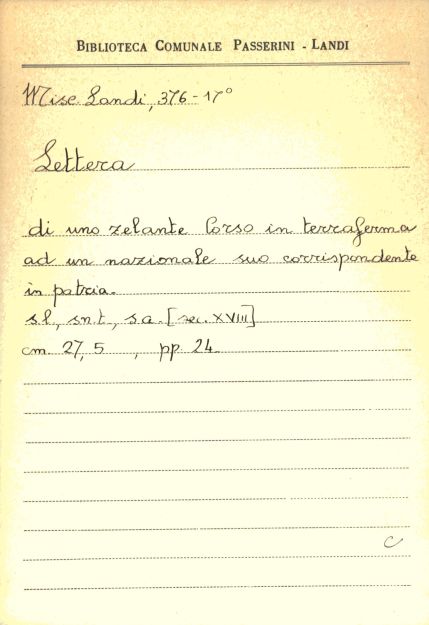 BIBLIOTECA COMUNALE PASSERINI - LANDI
Misc. Landi, 376-17°
Lettera
di uno zelante Corso in terraferma
ad un nazionale suo corrispondente
in patria.
s.l., s.n.t., s.a. [sec. XVIII]
cm. 27,5 , pp. 24
C